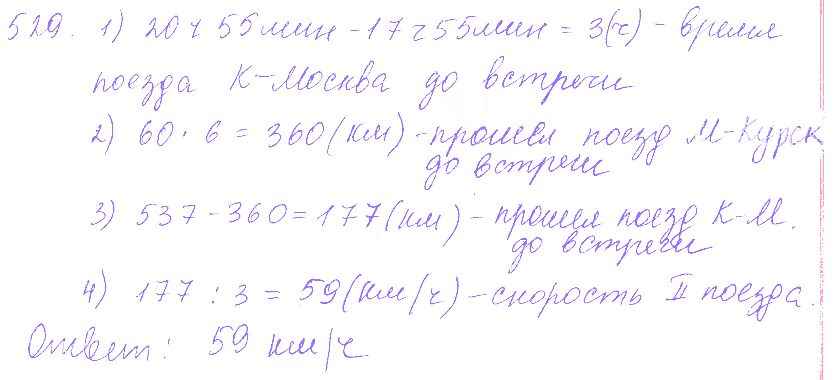 529. 1) 20 ч 55 мин - 17 ч 55 мин = 3(ч) - время
поезда К-Москва до встречи
2) 60 · 6 = 360 (км) - прошел поезд М-Курск
до встречи
3) 537 - 360 = 177 (км) - прошел поезд К-М.
до встречи
4) 177 : 3 = 59 (км/ч) - скорость II поезда.
Ответ: 59 км/ч